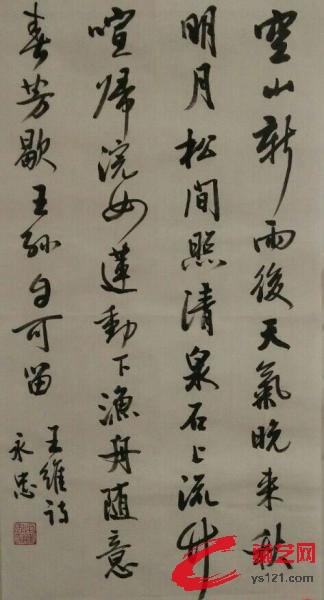 空山新雨後天氣晚来秋
明月松間照清泉石上流竹
喧歸浣女蓮動下漁舟随意
春芳歇王孙自可留
王維詩
永忠
梁艺网
ys121.com